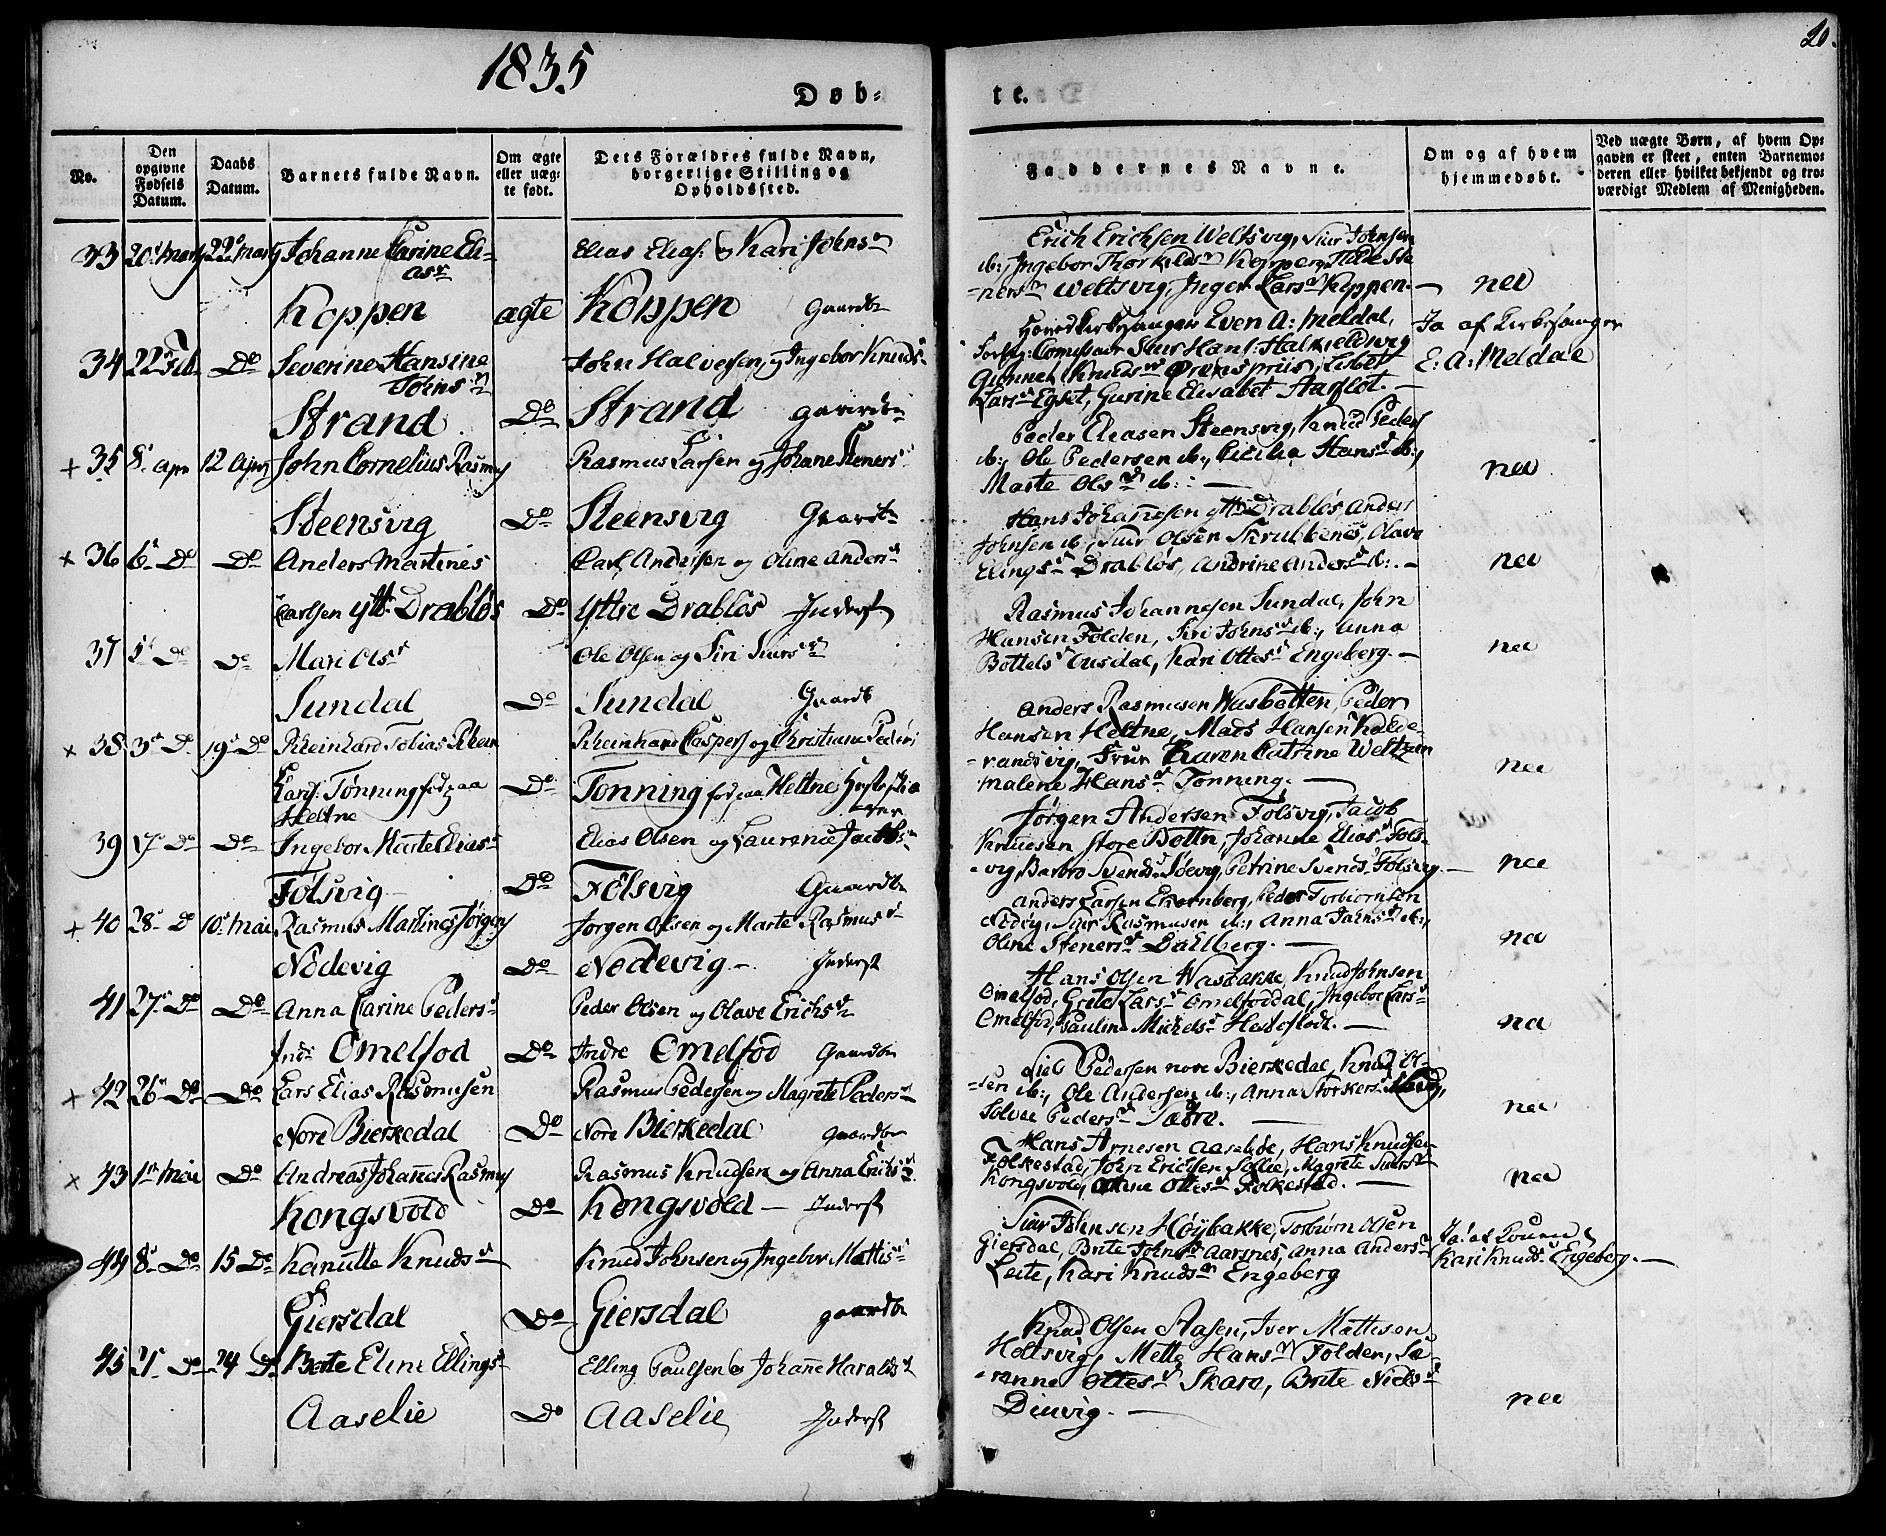 1835
20.
Døb-
te.
No.
Den opgivne Fødsels Datum.
Daabs Datum.
Barnets fulde Navn.
Om ægte eller uægte født.
Dets Forældres fulde Navn, borgerlige Stilling og Opholdssted.
Faddernes Navne.
Om og af hvem hjemmedøbt.
Ved uægte Børn, af hvem Opgaven er skeet, enten Barnemoderen eller hvilket bekjendt og troværdigt Medlem af Menigheden.
33 20d marz 22d marz Johanne Karine Eliasd
Koppen ægte
Elias Elias. og Kari Johnsd
Koppen Gaardb
Erich Erichsen Weltsvig, Siur Johnsen
ib:, Ingebor Thorkelsd Koppen,
Weltsvig, Inger Larsd Koppen.
nei
34 22d Feb Do Severine Hansine
Johnsd
Strand Do
John Halvorsen, og Ingebor Knudsd
Strand gaardb
Kirkesanger Even A: Meldal,
Gunnel Knudsd Ørenspriis, Lisbet
Larsd Egset, Gurine Elisabet Aarflot.
Ja af Kirkesanger
E: A: Meldal
+ 35 8d Apr 12 Apr John Cornelius Rasmus
Steensvig Do
Rasmus Larsen og Johane Stenersd
Steensvig Gaardb
Peder Eliasen Steensvig, Knud Peders
ib:, Ole Pedersen ib:, Cicilia Hansd ib:,
Marte Olsd ib:
nei
x 36 6d Do Do Anders Martines
Carlsen ytt: Drabløs Do
Carl Andersen og Oline Andersd
Yttre Drabløs Inderst
Hans Johannesen ytt: Drabløs Anders
Johnsen ib:, Siur Olsen Skrubbenes, Olave
Elingsd Drabløs, Andrine Andersd ib:.
nei
37 5d Do Do Mari Olsd
Sundal Do
Ole Olsen og Siri Siursd
Sundal Gaardb
Rasmus Johannesen Sundal, John
Hansen Folden, Siri Johnsd ib:, Anna
Bottelsd Ousdal, Kari Ottesd Engeberg.
nei
x 38 3d Do 19d Do Rheinhard Tobias Rhein
Carls: Tønning fød paa
Heltne Do
Rheinhard Caspers og Christiane Peders
Tønning fød paa Heltne
Anders Rasmusen Wasbotten, Peder
Hansen Heltne, Mads Hansen Kalde-
randsvig, Frue Karen Catrine Weltzen
Malene Hansd Tønning.
nei
39 17 Do Do Ingebor Marte Eliasd
Følsvig Do
Elias Olsen og Laurense Jacobsd
Følsvig Gaardb
Jørgen Andersen Følsvig, Jacob
Knudsen Store Bottn, Johanne Eliasd Føls-
vig, Barbro Svendsd Søevig, Petrine Svendsd Følsvig.
nei
+ 40 28d Do 10d Mai Rasmus Martines Jørgens
Nødevig Do
Jørgen Olsen og Marte Rasmusd
Nødevig Inderst
Anders Larsen Ennenberg, Peder Torbiørnsen
Nødevig, Siur Rasmusen ib:, Anna Jahnsd ib:,
Oline Stenersd Dahlberg.
nei
41 27d Do Do Anna Carine Pedersd
Indr Omelfod Do
Peder Olsen og Olave Erichsd
Indre Omelfod Gaardb
Hans Olsen Wasbakke, Knud Johnsen
Omelfod, Grete Larsd Omelfoddal, Ingebor Larsd
Omelfod, Pauline Michelsd Hesteflodt.
nei
x 42 26d Do Do Lars Elias Rasmusen
Nore Bierkedal Do
Rasmus Pedersen og Magrete Pedersd
Nore Bierkedal Gaardb
Niels Pedersen nore Bierkedal, Knud Ol-
sen ib:, Ole Andersen ib:, Anna Storkersd
Solvei Pedersd Sætre.
nei
x 43 1d Mai Do Andreas Johannes Rasmus
Kongsvold Do
Rasmus Knudsen og Anna Erichsd
Kongsvold Inderst
Hans Arnesen Aaseboe, Hans Knudsen
Folkestad, John Erichsen Solie, Magrete Siursd
Kongsvold, Oline Ottesd Folkestad.
nei
44 8d Do 15 Do Kanutte Knudsd
Giersdal Do
Knud Johnsen og Ingebor Mattisd
Giersdal gaardb
Siur Johnsen Høybakke, Torbiørn Olsen
Giersdal, Brite Johnsd Aarsnes, Anna Andersd
Leite, Kari Knudsd Engeberg
Ja: af
Kari Knudsd Engeberg.
45 21 Do 24 Do Berte Eline Ellingsd
Aaselie Do
Elling Paulsen og Johanne Haraldsd
Aaselie Inderst
Knud Olsen Aasen, Iver Mattisen
Heltsvig, Mette Hansd Folden, Sa-
ranne Ottesd Skare, Brite Nielsd
Dinvig.
nei